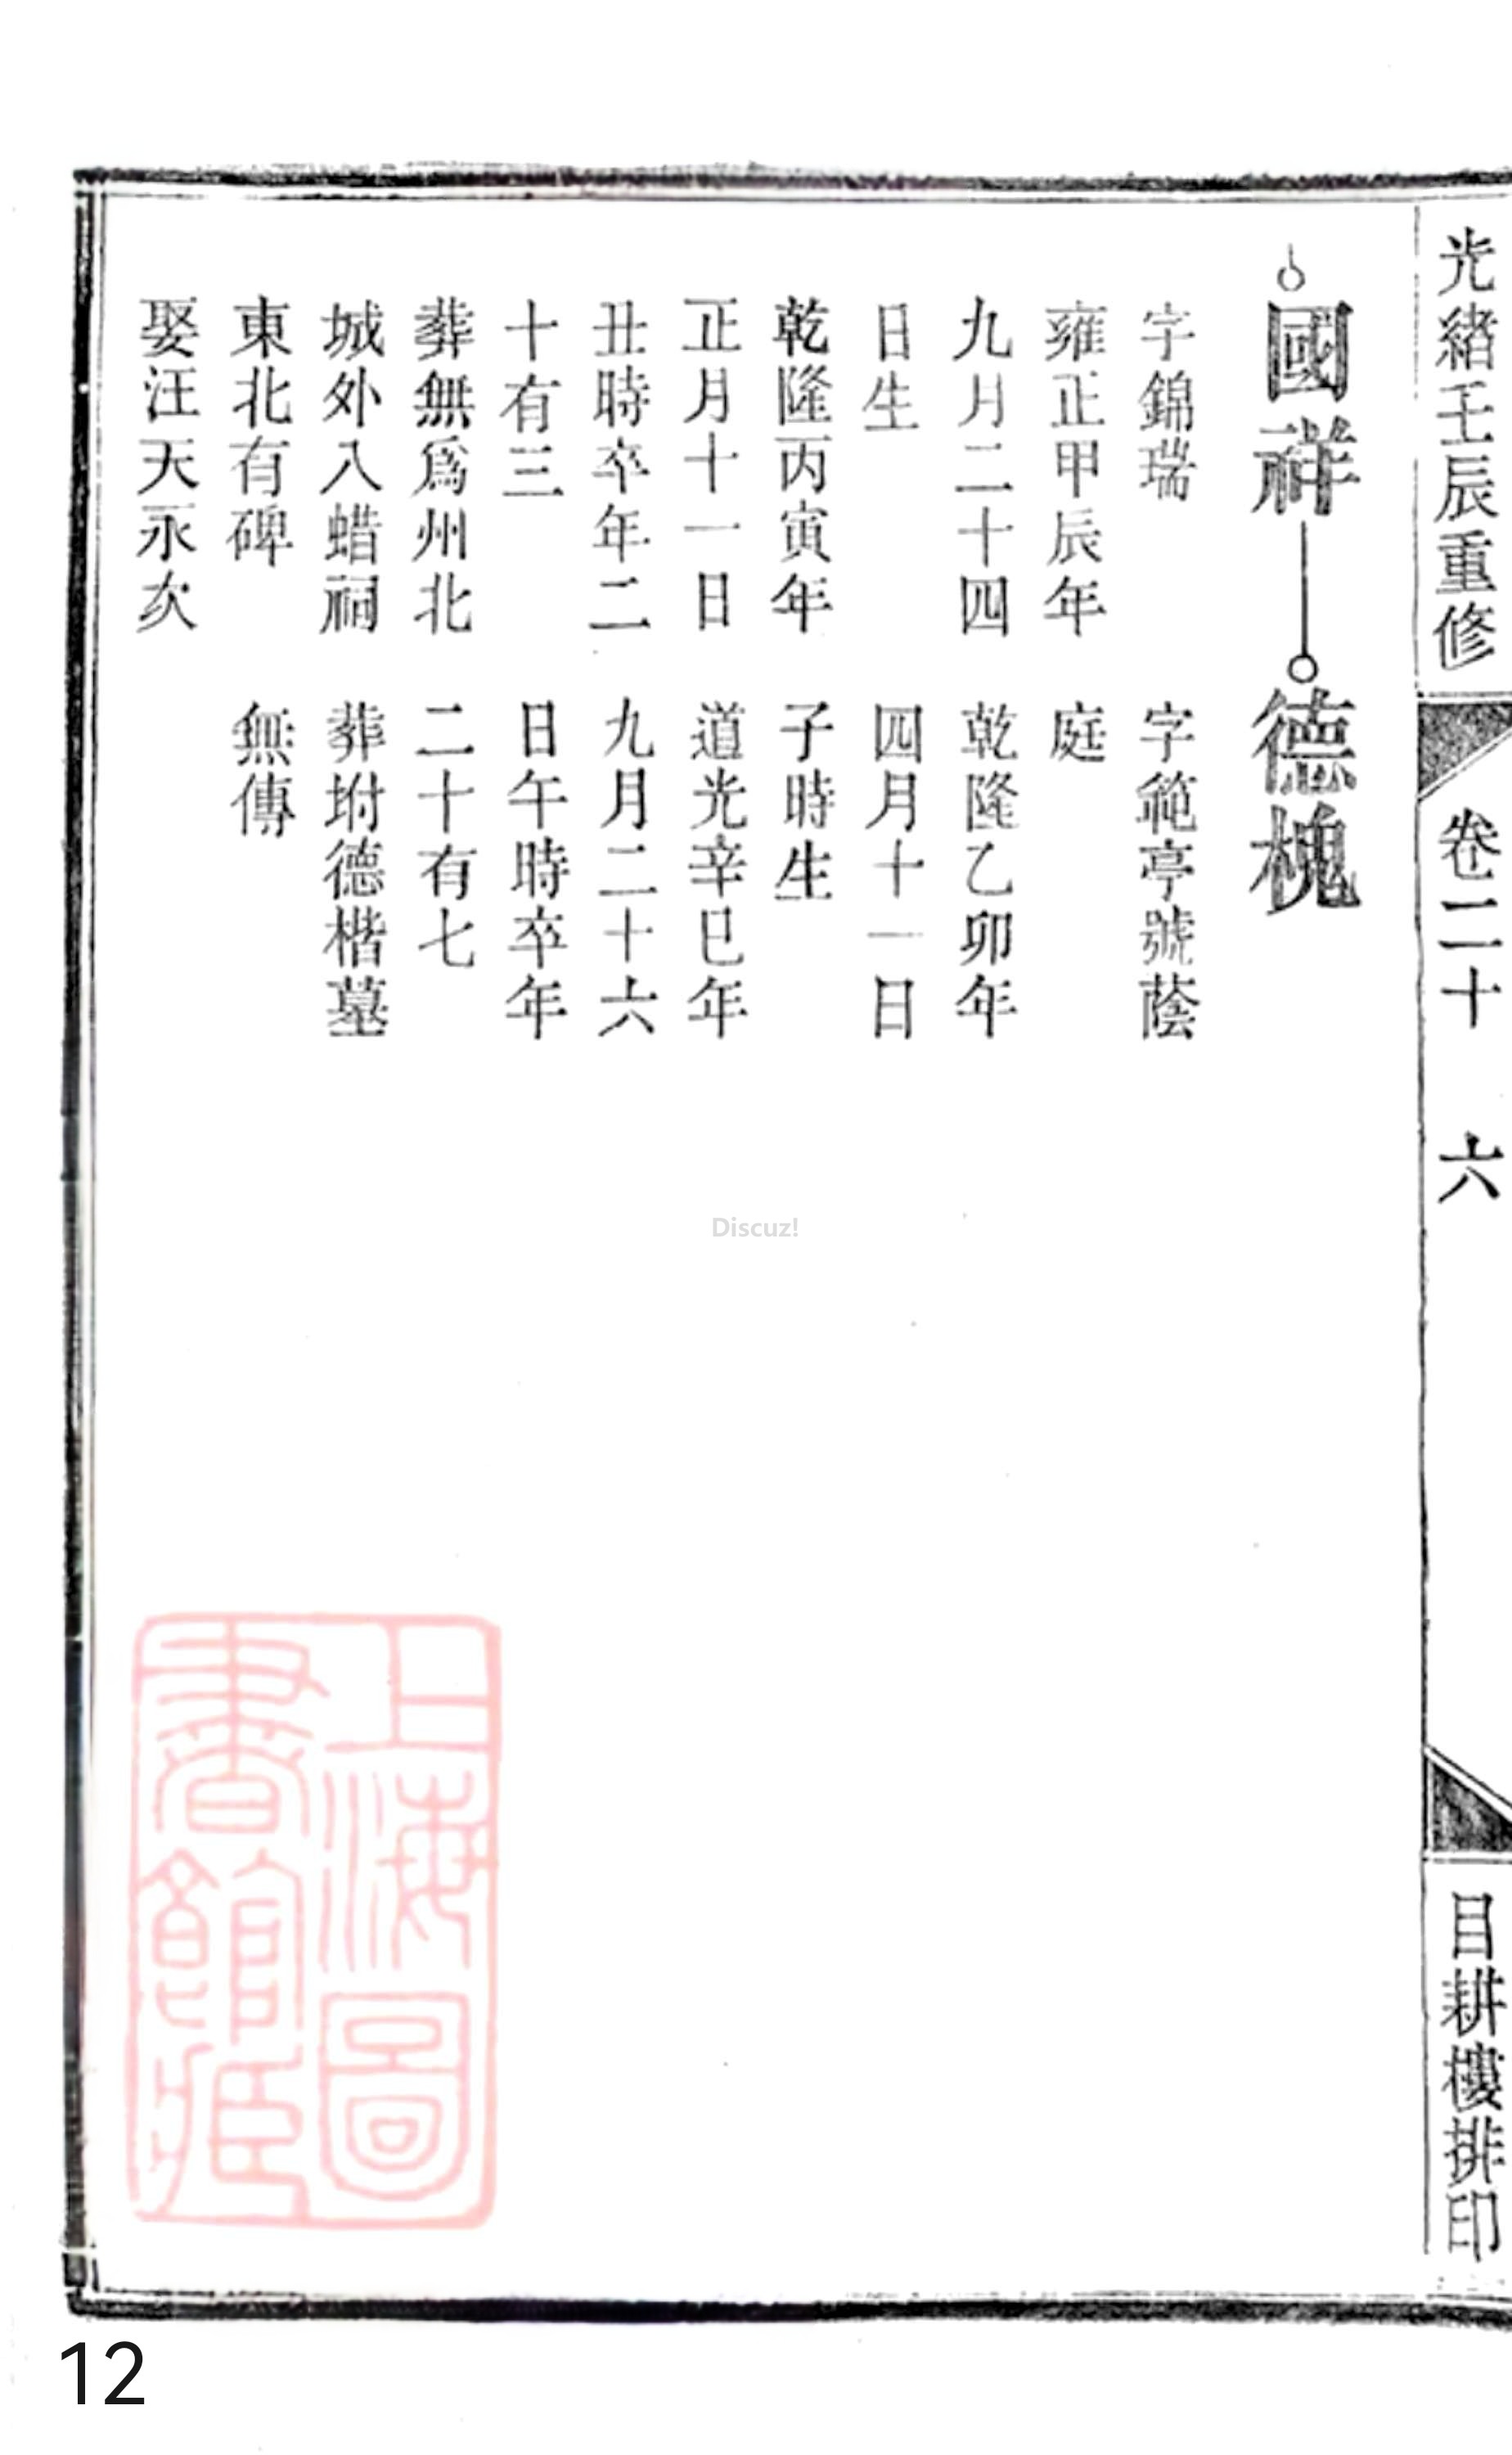 光緒壬辰重修
卷二十
六
目耕樓排印
國祥
德槐
字錦瑞
雍正甲辰年
九月二十四
日生
乾隆丙寅年
正月十一日
丑時卒年二
十有三
葬無爲州北
城外八蜡祠
東北有碑
娶汪天永次
字範亭號蔭
庭
乾隆乙卯年
四月十一日
子時生
道光辛巳年
九月二十六
日午時卒年
二十有七
葬坿德楷墓
無傳
Discuz!
上海圖
書館藏
12